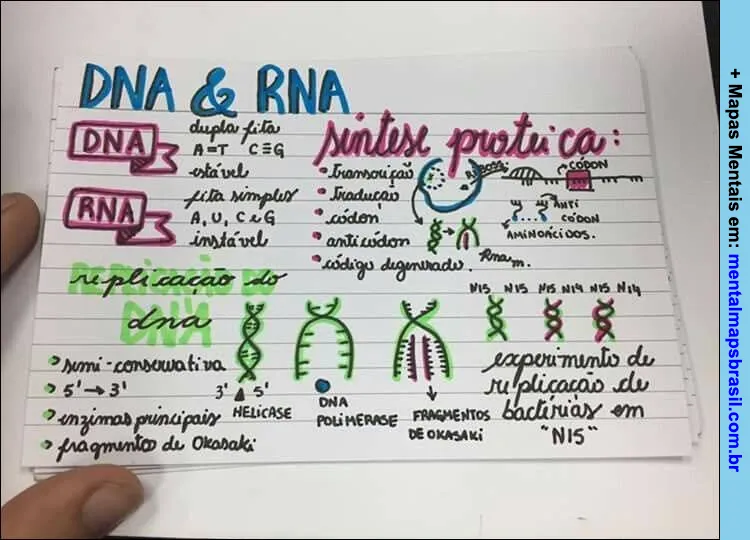 DNA & RNA
DNA
dupla fita
A=T C≡G
estável
RNA
fita simples
A, U, C e G
instável
síntese proteica:
• transcrição
• tradução
• códon
• anticódon
• código degenerado.
RIBOSS.
CÓDON
ANTI
CÓDON
AMINOÁCIDOS.
Rna m.
REPLICAÇÃO DO
DNA
replicação do
dna
• semi-conservativa
• 5' → 3'
• enzimas principais
• fragmentos de Okasaki
3' 5'
HELICASE
DNA
POLIMERASE
FRAGMENTOS
DE OKASAKI
N15 N15 N15 N14 N15 N14
experimento de
replicação de
bactérias em
"N15"
+ Mapas Mentais em: mentalmapsbrasil.com.br